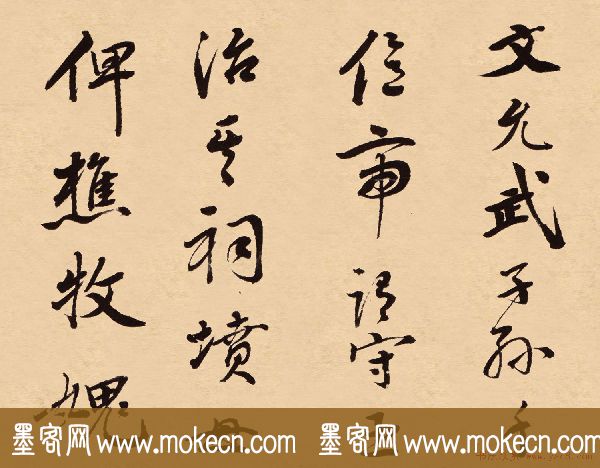 文允武子孫千
億帝謂守臣
治其祠墳毋
俾樵牧愧
墨客网 www.mokecn.com 墨客网 www.mokecn.com